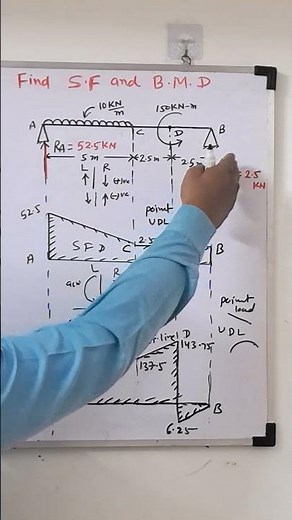 Find S.F and B.M.D
10 KN/m
150KN-m
A
C
D
B
RA = 52.5 KN
5 m
2.5 m
2.5 m
= 2.5
KN
L R
(+)ve
(-)ve
52.5
point
UDL
S F D
C
2.5
A
B
L
R
point
load
UDL
D
143.75
137.5
B
6.25